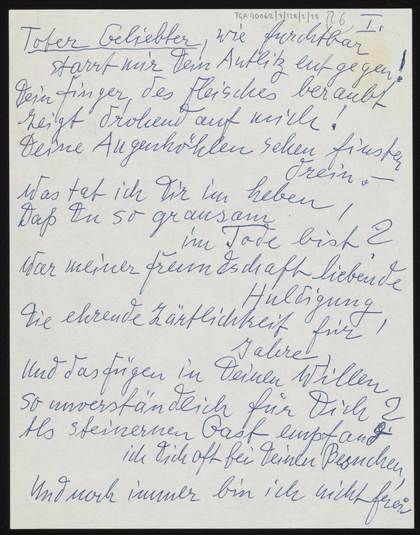 TGA 20062/4/178/2/28 R6
I.
Toter Geliebter, wie furchtbar
starrt mir Dein Antlitz entgegen!
Dein Finger, des Fleisches beraubt
zeigt drohend auf mich!
Deine Augenhöhlen sehen finster
drein. —
Was tat ich Dir im Leben,
Daß Du so grausam
im Tode bist?
War meiner Freundschaft liebende
Huldigung
Die ehrende Zärtlichkeit für
Jahre!
Und das fügen in Deinen Willen
So unverständlich für Dich?
Als steinernen Gast empfand
ich Dich oft bei Deinen Besuchen,
Und noch immer bin ich nicht frei